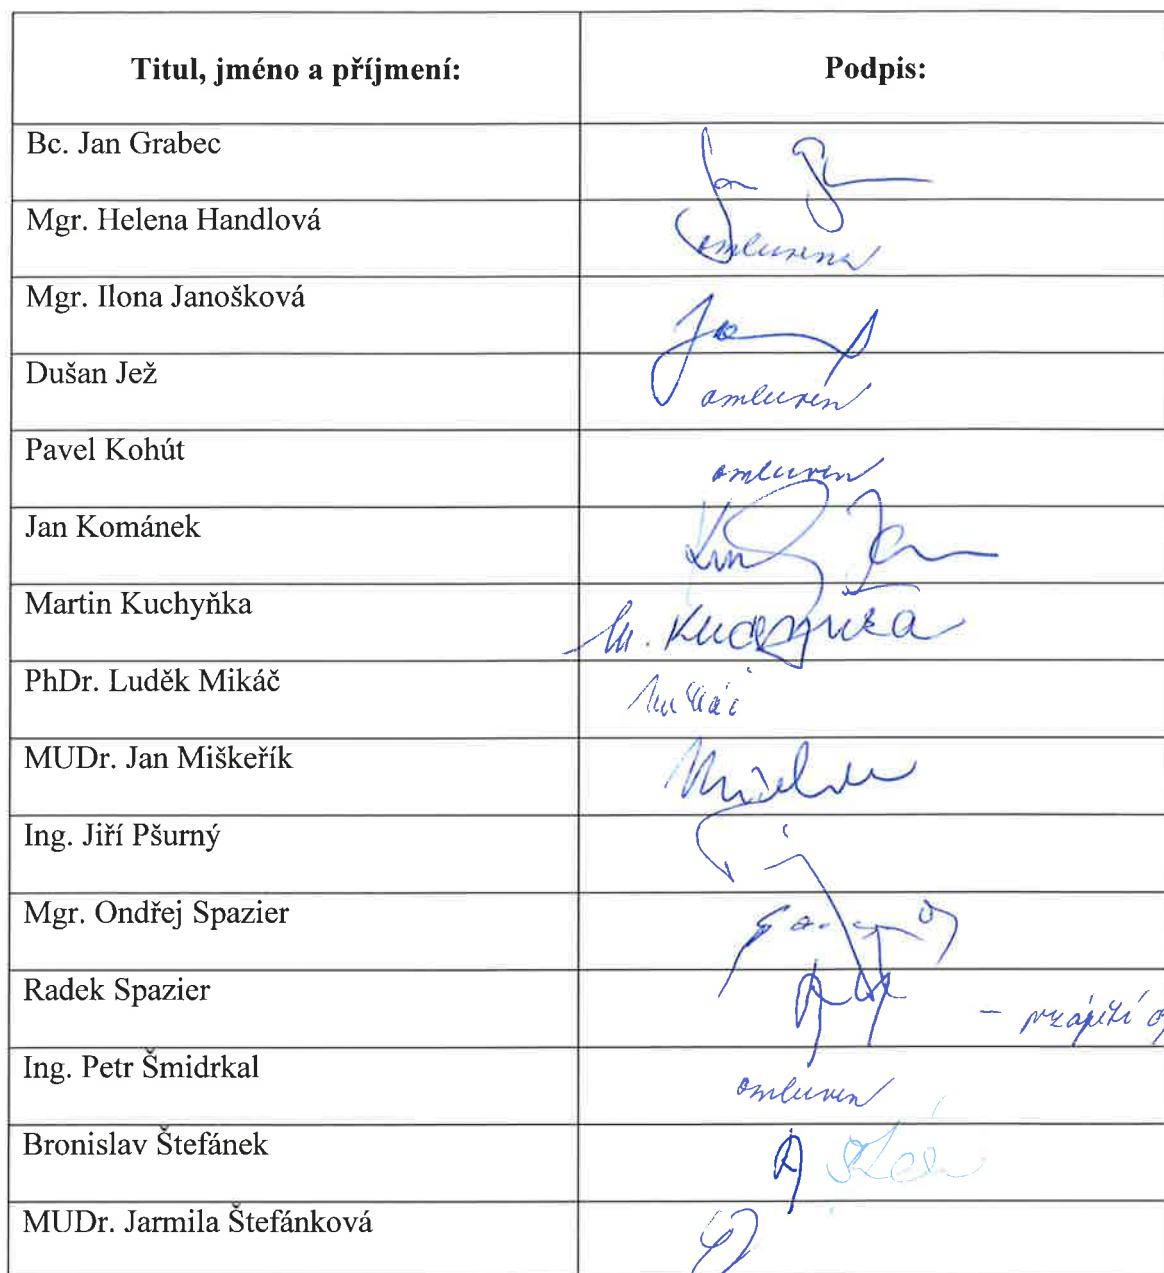 Titul, jméno a příjmení: Podpis:
Bc. Jan Grabec
Mgr. Helena Handlová omluvena
Mgr. Ilona Janošková
Dušan Jež omluven
Pavel Kohút omluven
Jan Kománek
Martin Kuchyňka M. Kuchyňka
PhDr. Luděk Mikáč Mikáč
MUDr. Jan Miškeřík
Ing. Jiří Pšurný
Mgr. Ondřej Spazier
Radek Spazier
Ing. Petr Šmidrkal omluven
Bronislav Štefánek
MUDr. Jarmila Štefánková